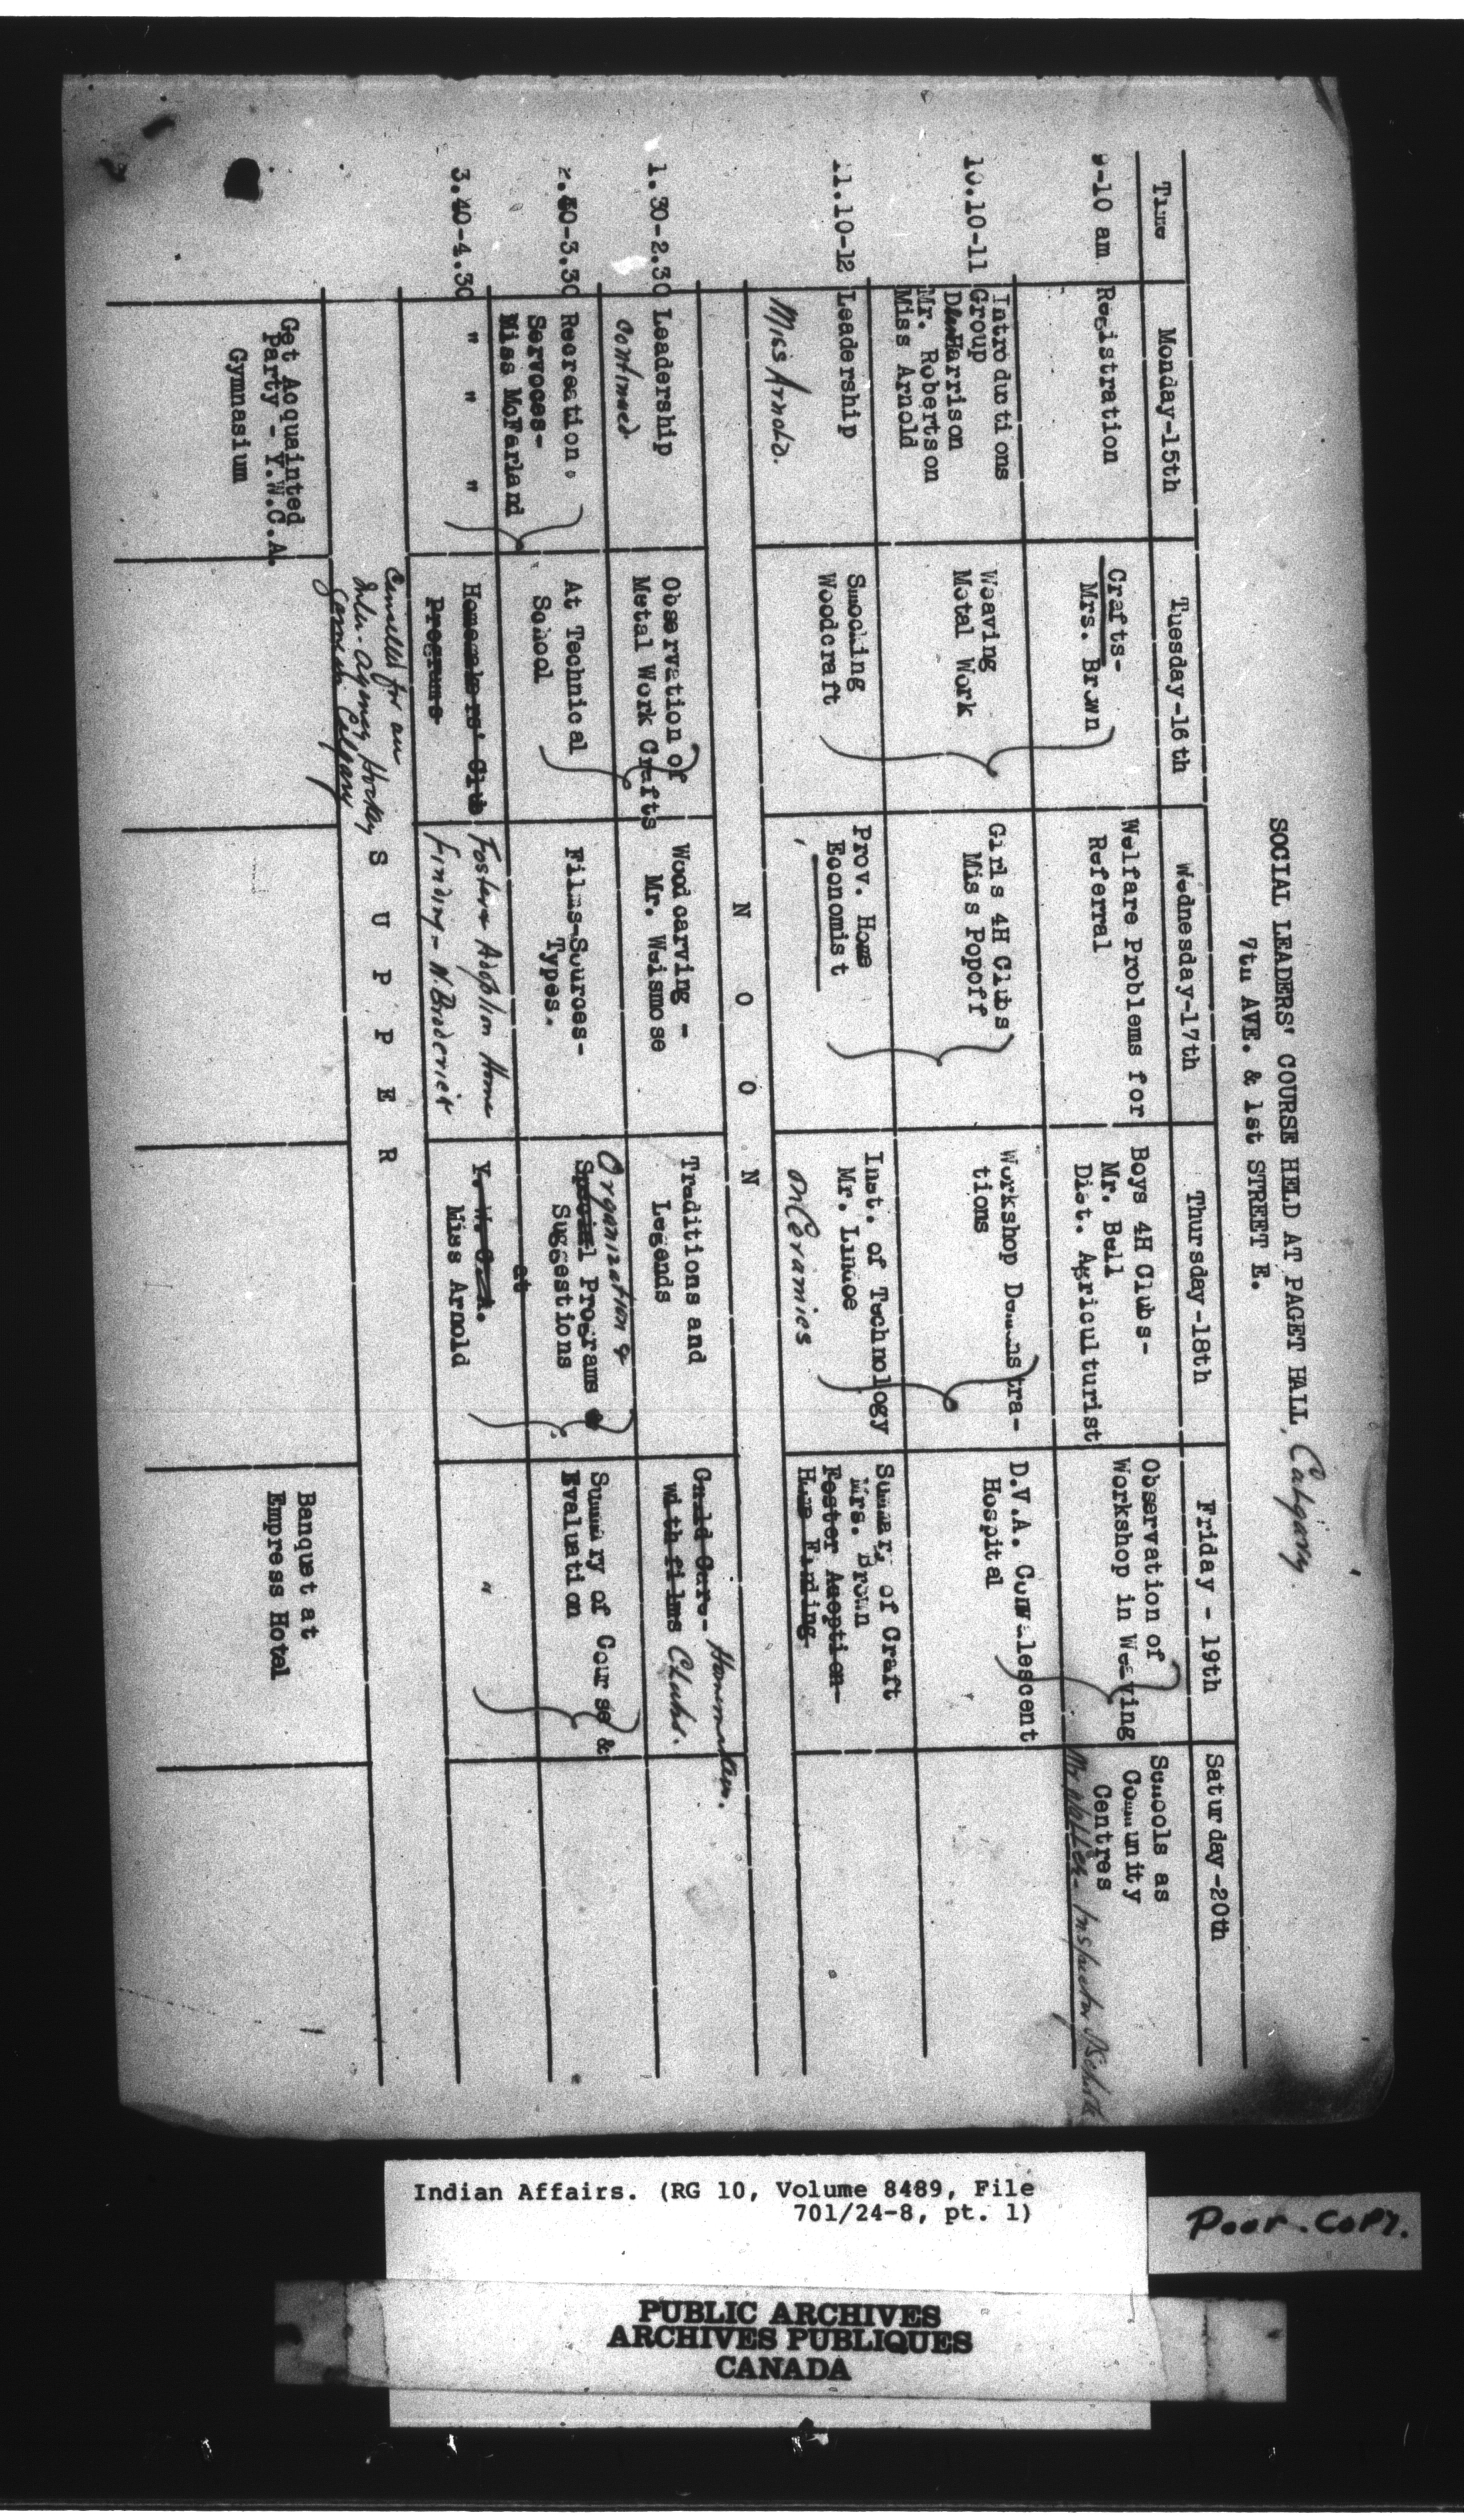 SOCIAL LEADERS' COURSE HELD AT PAGET HALL, Calgary.
7th AVE. & 1st STREET E.
Time
Monday-15th
Tuesday-16th
Wednesday-17th
Thursday-18th
Friday - 19th
Saturday-20th
9-10 am
Registration
Crafts-
Mrs. Brown
Welfare Problems for
Referral
Boys 4H Clubs-
Mr. Bell
Dist. Agriculturist
Observation of
Workshop in Weaving
Schools as
Community
Centres
Inspector
10.10-11
Introductions
Group
Harrison
Mr. Robertson
Miss Arnold
Weaving
Metal Work
Girls 4H Clubs
Miss Popoff
Workshop Demonstra-
tions
D.V.A. Convalescent
Hospital
11.10-12
Leadership
Miss Arnold.
Smocking
Woodcraft
Prov. Home
Economist
Inst. of Technology
Mr.
on Ceramics
Summary of Craft
Mrs. Brown
Foster Adoption-
Home Finding
N O O N
1.30-2.30
Leadership
continued
Observation of
Metal Work Crafts
Woodcarving -
Mr. Weismose
Traditions and
Legends
Child Care- Homemakers.
with films Clubs.
2.30-3.30
Recreation.
Servoces-
Miss McFarland
At Technical
School
Films-Sources-
Types.
Organization &
Special Programs
Suggestions
at
Summary of Course &
Evaluation
3.40-4.30
" " "
Homemakers' Club
Programs
Foster Adoption Home
Finding - N. Broderick
Y. W. C. A.
Miss Arnold
"
S U P P E R
Cancelled for an
Inter-agency Hockey
game in Calgary
Get Acquainted
Party - Y.W.C.A.
Gymnasium
Banquet at
Empress Hotel
Indian Affairs. (RG 10, Volume 8489, File
701/24-8, pt. 1)
Poor Copy.
PUBLIC ARCHIVES
ARCHIVES PUBLIQUES
CANADA